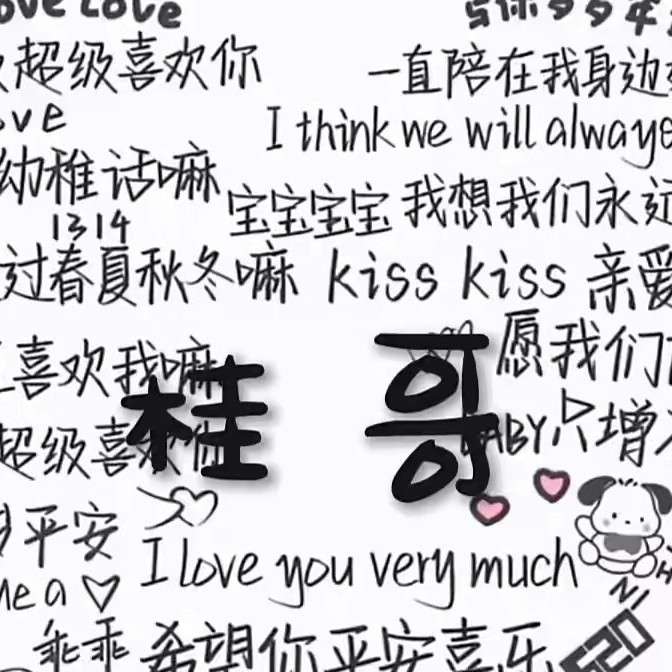 ove Love
与你岁岁年
超级喜欢你
一直陪在我身边
ove
I think we will always
幼稚话嘛
宝宝宝宝 我想我们永远
1314
过春夏秋冬嘛 kiss kiss 亲爱
喜欢我嘛
愿我们
桂 哥
超级喜欢你
BABY只增
平安
I love you very much
me a
520
乖乖 希望你平安喜乐